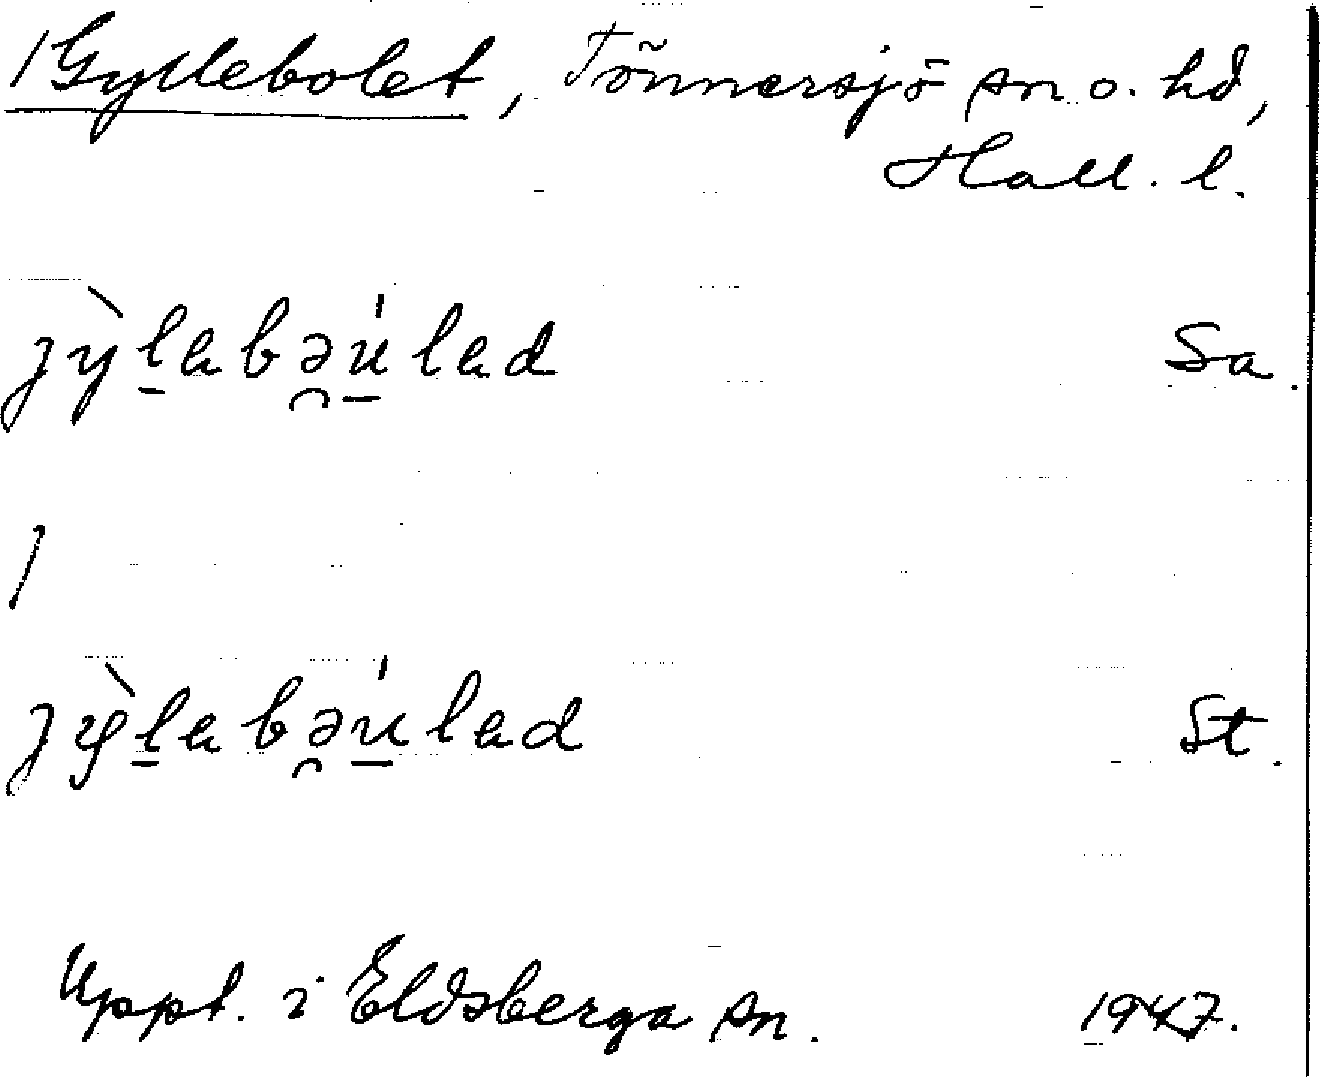 /Gyllebolet, Tönnersjö sn o. hd,
Hall. l.
jỳl̠abə̯ú̠lad Sa.
/
jỳl̠abə̯ú̠lad St.
Uppt. i Eldsberga sn. 1947.